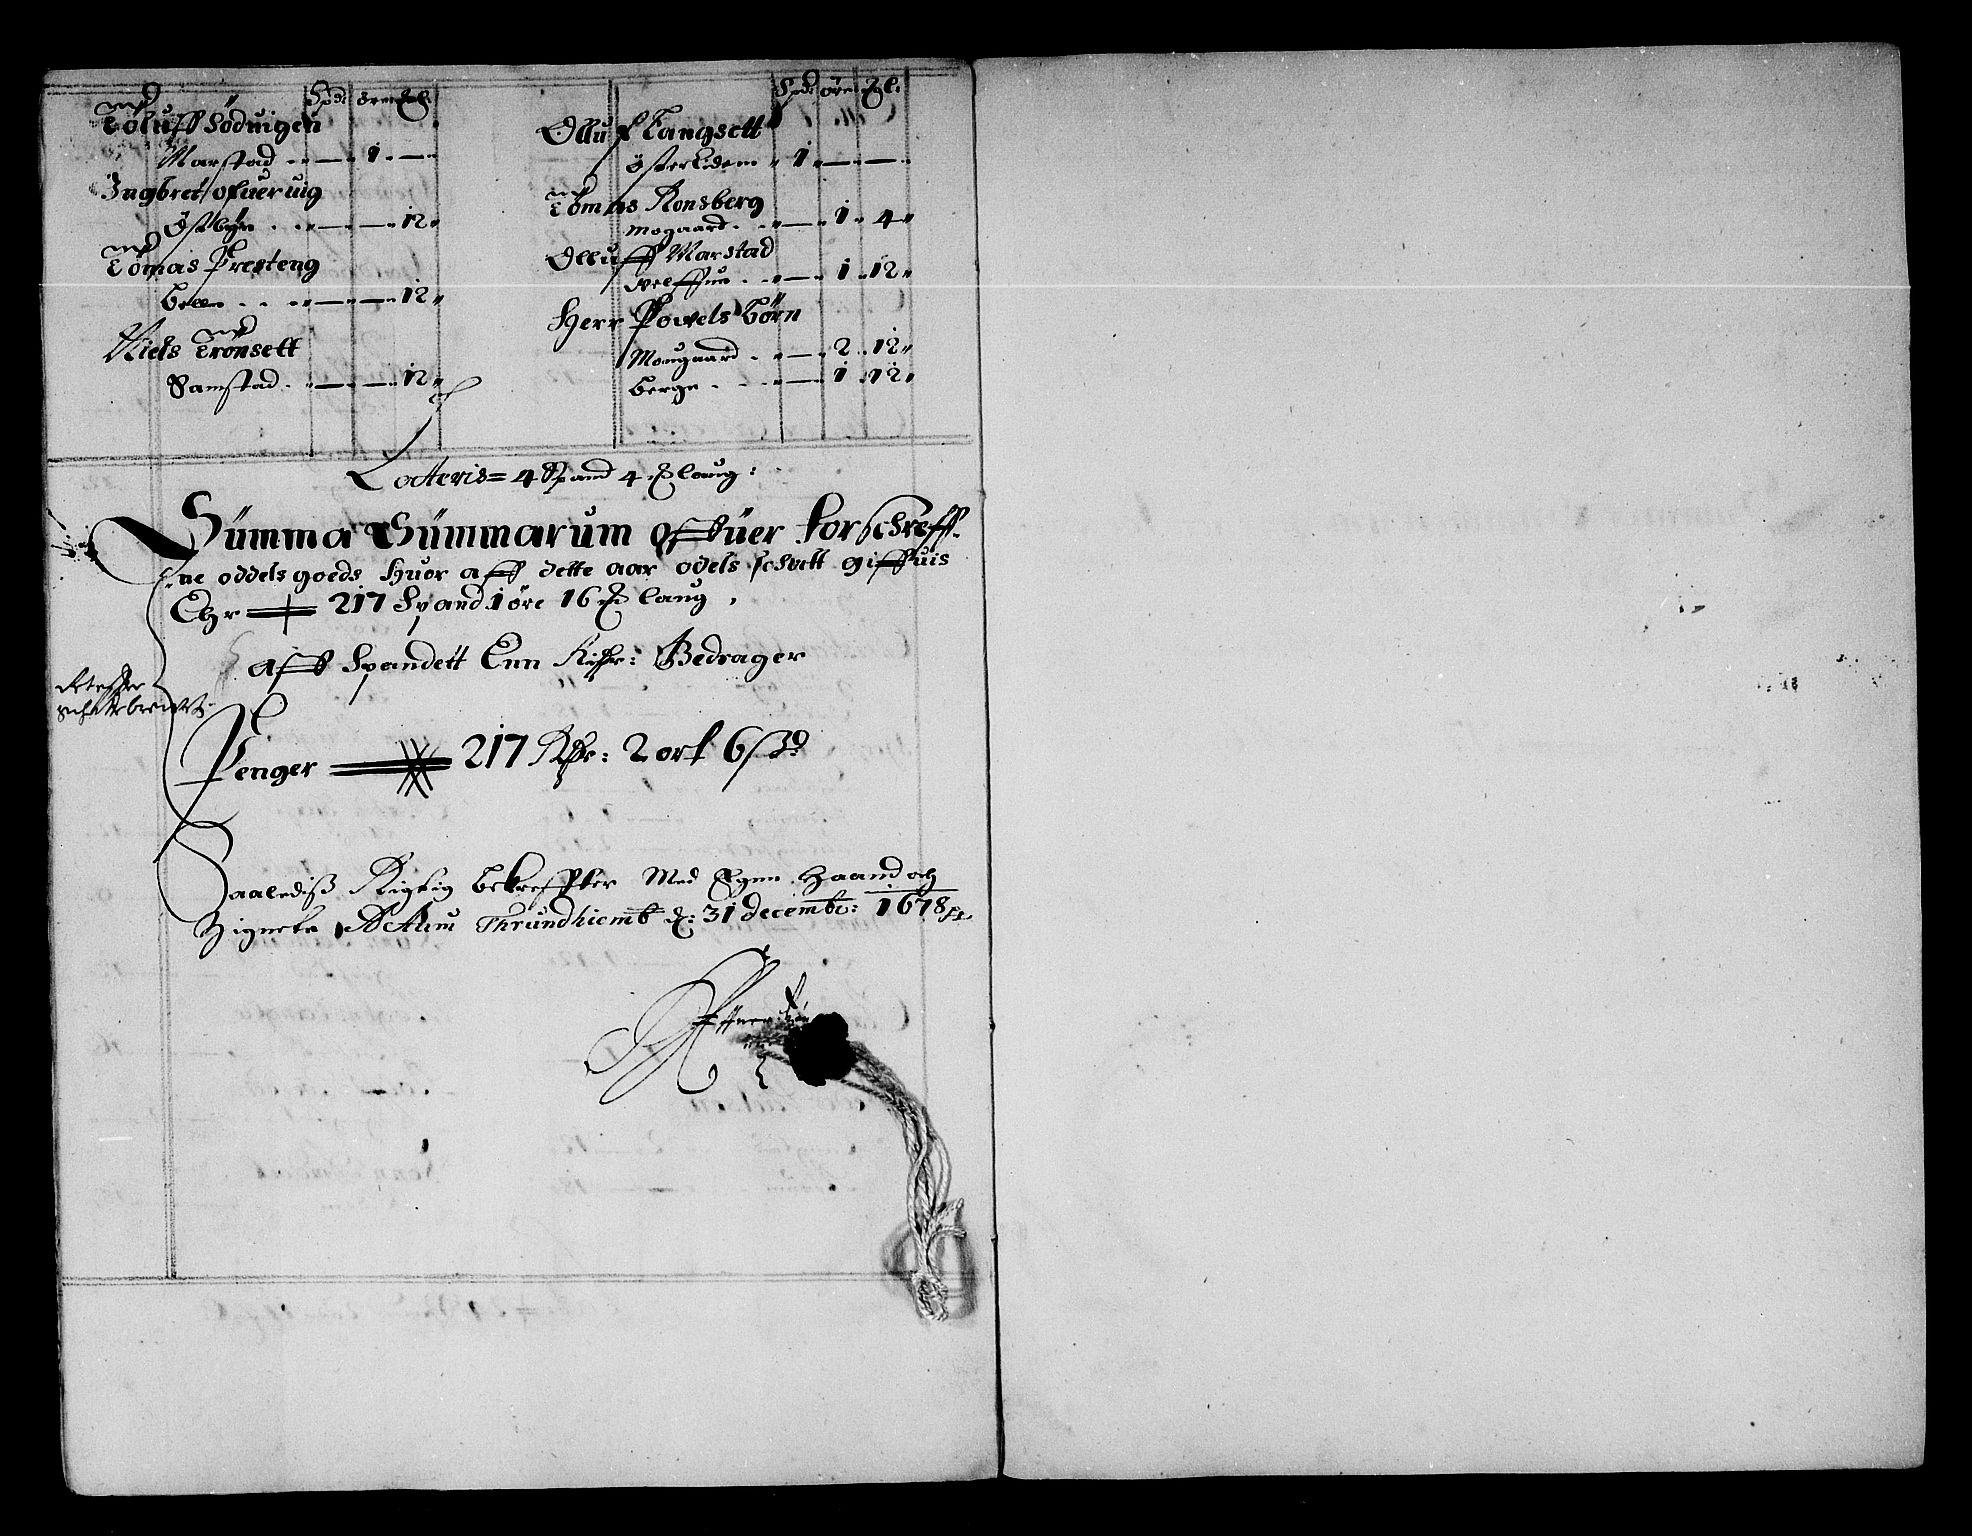 Spd: öre ℔l:
Toluff Södvigen
Marstad . . — . 1 . —
Ingbret ofueruig
Østbyn . . — . — . 12
Tomas Presteng
Belln . . — . — . 12
Niels Trönsett
Samstad . . — . — . 12
Spd: öre ℔l:
Olluf Langsett
österlidem . 1 . — . —
Tomas Ronsberg
mogaard . . — . 1 . 4
Olluff Marstad
. . — . 1 . 12
Herr Powels börn
Mougaard . . — . 2 . 12
berge . . — . 1 . 12
Latteris = 4 Spand 4 ℔ laug:
Summa Summarum offuer forschreff-
ne oddels goeds huor aff dette aar odels schatt giffuis
Ehr — 217 Spand 1 öre 16 ℔ laug,
aff Spandett Enn Rixr: Bedrager
Penger — 217 Rixr: 2 ort 6 ß d
Saalediß Rigtig bekreffter Med Egen Haand och
Zignete Actum Thrundhiemb d: 31 decembr: 1678